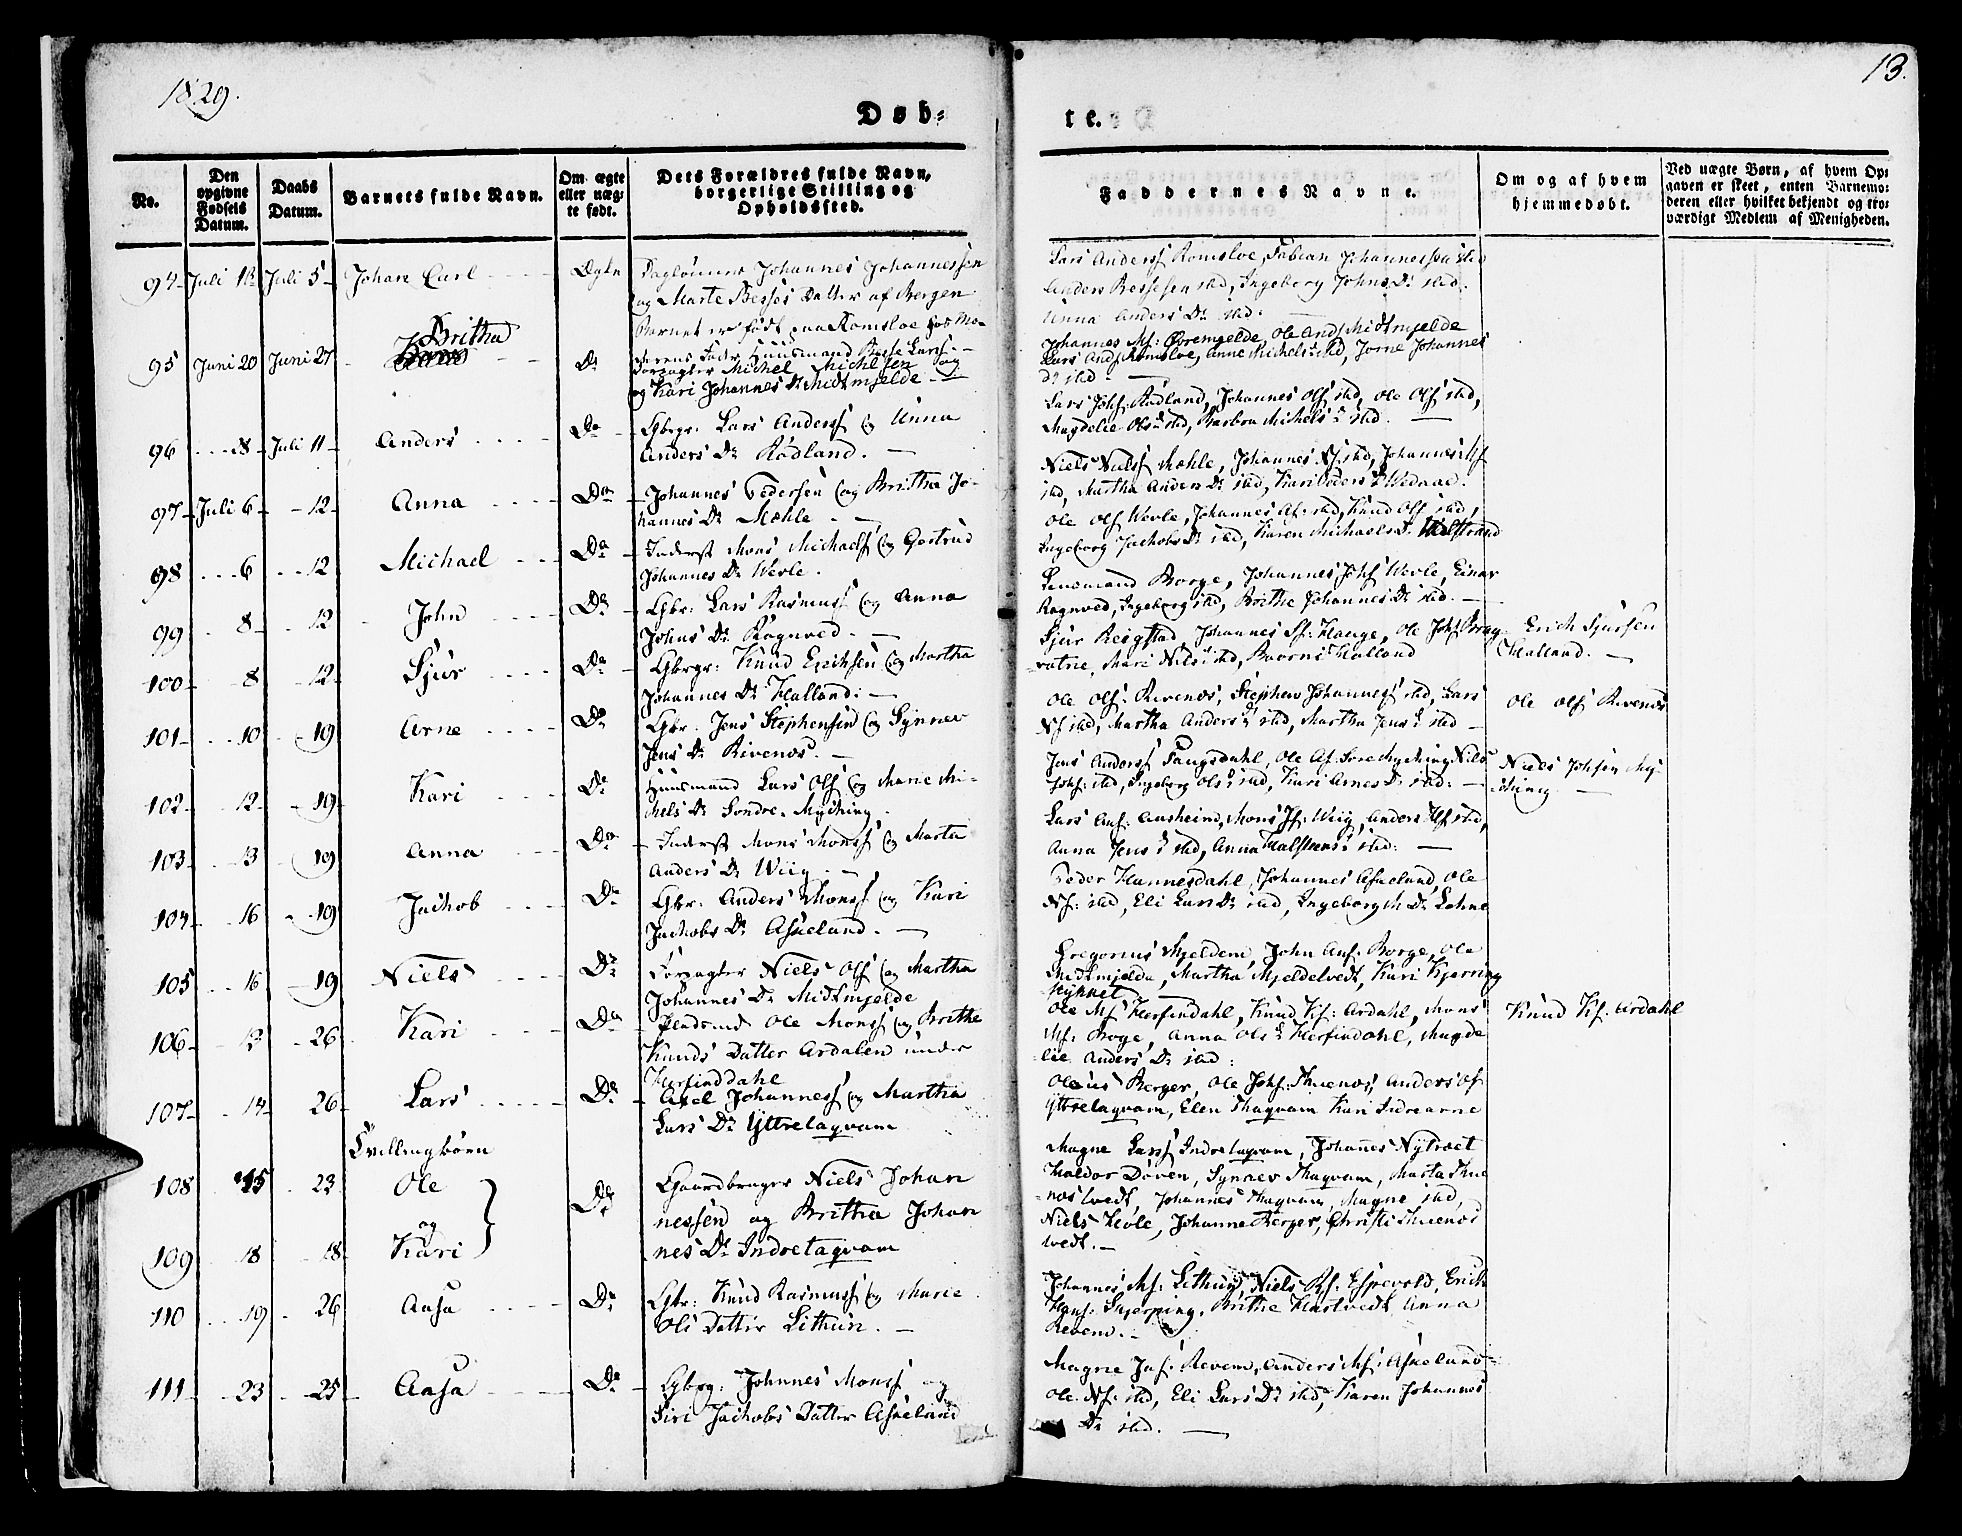 1829.
13.
Døb-
te.
No.
Den opgivne Fødsels Datum.
Daabs Datum.
Barnets fulde Navn.
Om ægte eller uægte født.
Dets Forældres fulde Navn, borgerlige Stilling og Opholdssted.
Faddernes Navne.
Om og af hvem hjemmedøbt.
Ved uægte Børn, af hvem Opgaven er skeet, enten Barnemoderen eller hvilket bekjendt og troværdigt Medlem af Menigheden.
94 Juli 1 Juli 5 Johan Carl Ægte
Daglønner Johannes Johannessen
og Marte Besses Datter af Bergen
Barnet er født paa Romsloe hos Mo-
derens Fader Huusmand Besse Larss
Lars Anderss Romsloe, Fabian Johannessen sted
Anders Bessesen sted, Ingeborg Johns Dr sted.
Unna Anders Dr sted.
95 Juni 20 Juni 27 Britha Do
Forpagter Michel Michelsen og
og Kari Johannes Dr Midtmjelde
Johannes Ms: Øvremjelde, Ole Ands Midtmjelde
Lars Ands Romsloe, Anne Michels Dr sted, Jorne Johannes
Dr sted
96 8 Juli 11 Anders Do
Gbrgr: Lars Anderss og Unna
Anders Dr Rødland.
Lars Johs: Rødland, Johannes Ols sted, Ole Ols sted,
Magdelie Ols Dr sted, Barbra Michels Dr sted.
97 Juli 6 12 Anna Do
Johannes Pedersen og Britha Jo-
hannes Dr Mæhle
Niels Nielss Mæhle, Johannes Ns sted, Johannes Ms
sted, Martha Anders Dr sted, Kari Peders Dr
98 6 12 Michael Do
Inderst Mons Michaels og Gertrud
Johannes Dr Wevle.
Ole Ols Wevle, Johannes As: sted, Knud Ols sted,
Ingeborg Jachobs Dr sted, Karen Michaels Dr
99 8 12 John Do
Gbr: Lars Rasmuss og Anna
Johns Dr Rognved.
Lensmand Borge, Johannes Johs Wevle, Einar
Rognved, Ingeborg sted, Brithe Johannes Dr sted.
100 8 12 Sjur Do
Gbrgr: Knud Erichsen og Martha
Johannes Dr Halland.
Sjur Reigstad, Johannes Ss: Hauge, Ole Johs Brag-
vatne, Mari Nils Dr sted, Halland
Erich Sjursen
Halland.
101 10 19 Arne Do
Gbr: Jens Stephensen og Synnev
Jens Dr Rivenos.
Ole Ols: Rivenos, Stephen Johanness sted, Lars
Ns sted, Martha Anders Dr sted, Martha Jens Dr sted
Ole Ols Rivenos
102 12 19 Kari Do
Huusmand Lars Ols og Marie Mi-
chels Dr Søndre Mychting.
Jens Anderss Tangsdahl, Ole As: Søre Mychting Niels
Johs: sted, Ingeborg Ols Dr sted, Kari Arnes Dr sted:
Niels Johsen My-
chting
103 13 19 Anna Do
Inderst Mons Monss og Marta
Anders Dr Wiig.
Lars Ans: Ausheim, Mons Js: Wiig, Anders Hs sted,
Anna Jens Dr sted, Anna Halsteens Dr sted:
104 16 19 Jachob Do
Gbr: Anders Monss og Kari
Jachobs Dr Asheland.
Peder Hannesdahl, Johannes Asheland, Ole
Ns: sted, Eli Lars Dr sted, Ingeborg M Dr Lohne
105 16 19 Niels Do
Forpagter Niels Ols og Martha
Johannes Dr Midtmjelde
Gregorius Mjeldem, John Ans: Borge, Ole
Midtmjelde, Martha Mjeldetvedt, Kari
106 13 26 Kari Do
Ole Monss og Brithe
Knuds Datter Ardalen under
Herfinddahl
Ole Ms Herfindahl, Knud Ks: Ardahl, Mons
Ms: Boge, Anna Ols Dr Herfindahl, Magde
lie Anders Dr sted:
Knud Ks. Ardahl
107 14 26 Lars Do
Axel Johanness og Martha
Lars Dr Yttretaqvam
Oleus Berger, Ole Johs: Thuenos, Anders Os
Yttretaqvam, Elen Thaqvam Kari Indre Arne
Tvillingbørn
108 15 23 Ole
og
109 18 18 Kari Do
Gaardbruger Niels Johan
nessen og Britha Johan
nes Dr Indretaqvam
Magne Larss Indretaqvam, Johannes Nytræet
Haldor Døven, Synnev Thaqvam, Marta Thue
nos tvedt, Johannes Thaqvam, Magne sted,
Niels Hevle, Johanne Berger, Christi Thuenos
tvedt.
110 19 26 Aasa Do
Gbr: Knud Rasmuss og Marie
Ols Datter Lithun.
Johannes Ms: Lithun, Niels Rs. Espevold, Erich
Hans: , Brithe Hartvedt, Unna
Revem.
111 23 25 Aasa Do
Gbrg: Johnnes Monss og
Siri Jachobs Datter Asheland
Magne Jas: Revem, Anders Ms: Asheland
Ole Ns: sted, Eli Lars Dr sted, Karen Johannes
Dr sted.